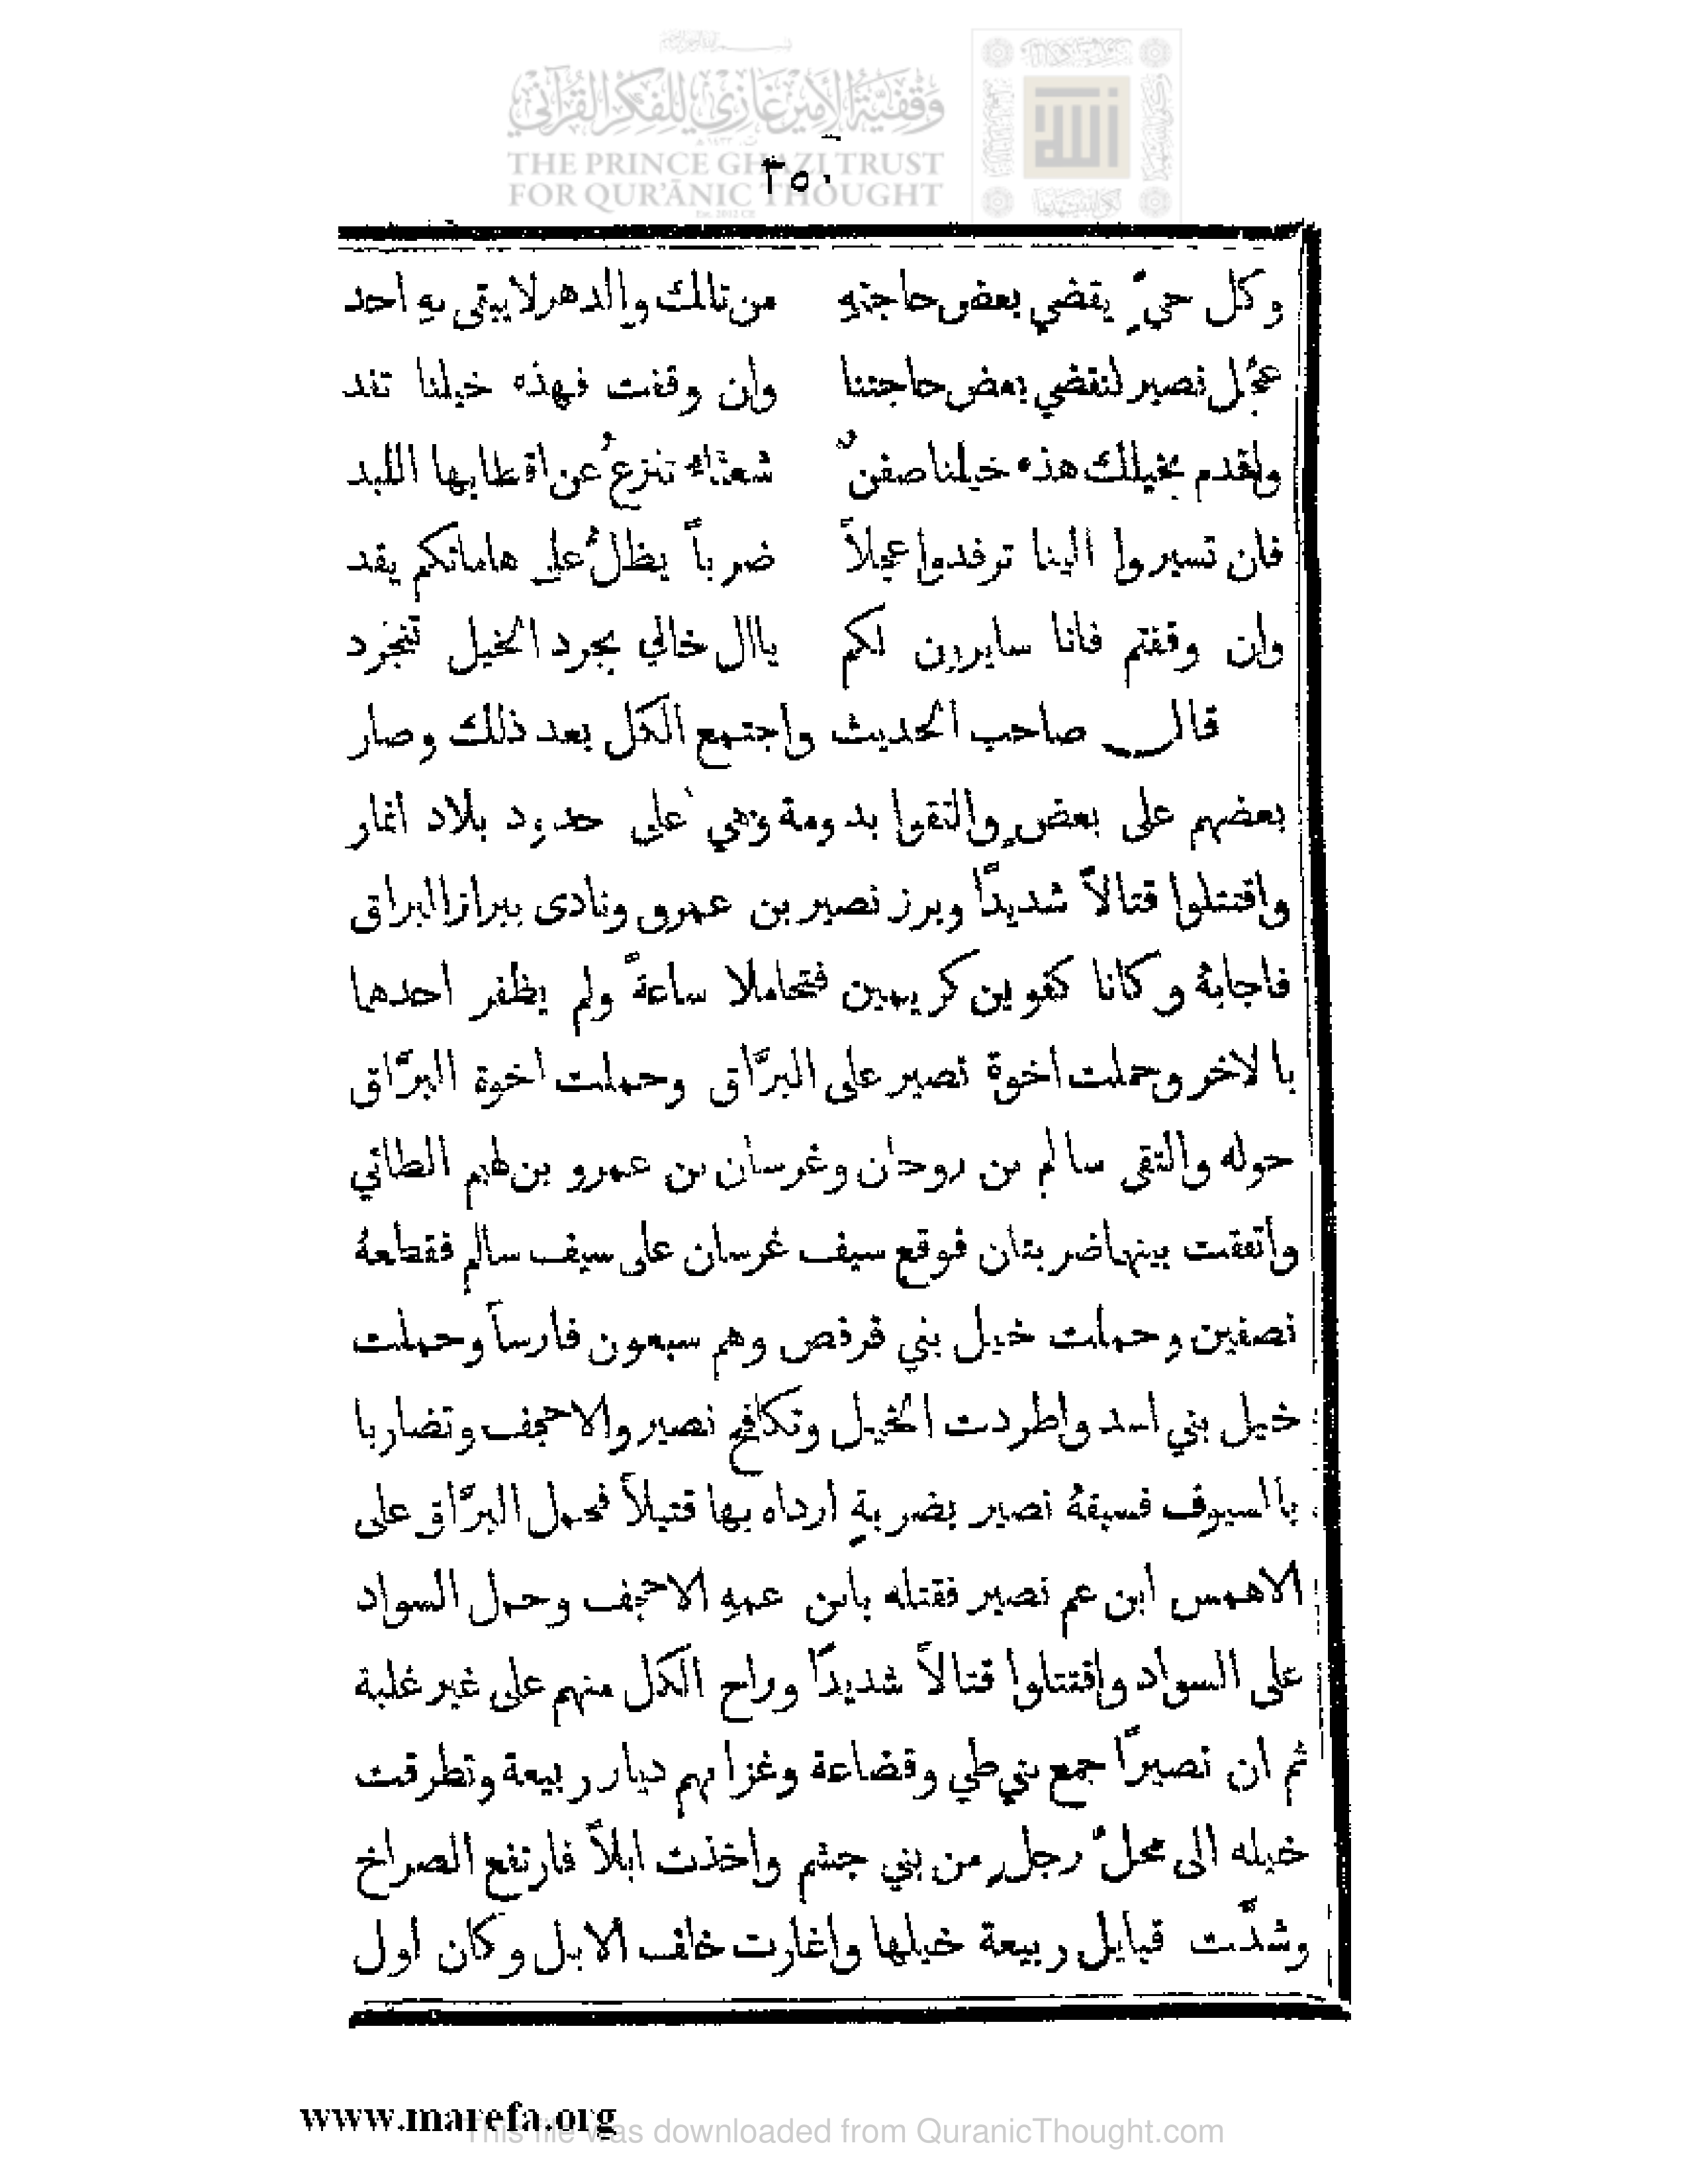 وقفية الأمير غازي للفكر القرآني
THE PRINCE GHAZI TRUST
FOR QUR'ĀNIC THOUGHT
Est. 2012 CE
٣٥٠
وكل حيٍّ يقضي بعض حاجتهِ من تالك والدهر لا يبقى بهِ احد
عجّل نصير لنقضي بعض حاجتنا وان وقفت فهذه خيلنا تفد
واقدم بخيلك هذه خيلنا صفنٌ شعثاء تنزعُ عن اقطابها اللبد
فان تسيروا الينا ترفدوا عجلاً ضرباً يظلُّ على هاماتكم يفد
وان وقفتم فانا سايرون لكم ياال خالي بجرد الخيل تنجرد
قال صاحب الحديث واجتمع الكل بعد ذلك وصار
بعضهم على بعضٍ والتقوا بدومة وهي على حدود بلاد انمار
واقتتلوا قتالاً شديدًا وبرز نصير بن عمرو ونادى ببراز البراق
فاجابهُ وكانا كفوين كريمين فتحاملا ساعةً ولم يظفر احدها
بالاخر وحملت اخوة نصير على البرَّاق وحملت اخوة البرَّاق
حوله والتقى سالم بن روحان وغرسان بن عمرو بن لهيم الطائي
واتفقت بينهما ضربتان فوقع سيف غرسان على سيف سالم فقطعهُ
نصفين وحملت خيل بني فرفص وهم سبعون فارساً وحملت
خيل بني اسد واطردت الخيل وتكافح نصير والاحجف وتضاربا
بالسيوف فسبقهُ نصير بضربةٍ ارداه بها قتيلاً فحمل البرَّاق على
الاهمس ابن عم نصير فقتله بابن عمهِ الاحجف وحمل السواد
على السواد واقتتلوا قتالاً شديدًا وراح الكل منهم على غير غلبة
ثم ان نصيرًا جمع بني طي وقضاعة وغزا بهم ديار ربيعة وتطرقت
خيله الى محلّ رجلٍ من بني جشم واخذت ابلاً فارتفع الصراخ
وشدَّت قبايل ربيعة خيلها واغارت خلف الابل وكان اول
www.marefa.org
This file was downloaded from QuranicThought.com